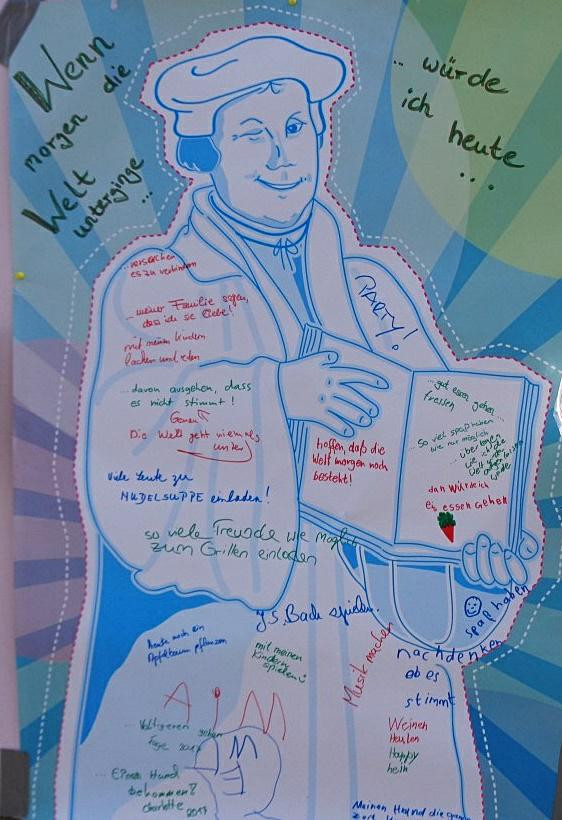 Wenn
morgen die
Welt
unterginge
...
... würde
ich heute
...
...versuchen
es zu verhindern
...meiner Familie sagen,
dass ich sie liebe!
mit meinen Kindern
lachen und reden
...davon ausgehen, dass
es nicht stimmt!
Genau
Die Welt geht niemals
unter
viele Leute zu
NUDELSUPPE einladen!
so viele Freunde wie möglich
zum Grillen einladen
PARTY!
hoffen, daß die
Welt morgen noch
besteht!
...gut essen gehen
fressen
...so viel spaß haben
wie nur möglich
...überlegen
wie ich die
Welt
würde
dan würde ich
eis essen gehen
J.S. Bach spielen.
spaß haben
heute noch ein
Apfelbaum pflanzen
mit meinen
Kindern
spielen
Musik machen
nachdenken
ob es
stimmt
Weinen
Heulen
Happy
sein
...Voltigieren gehen
2017
...Einen Hund
bekommen?
Charlotte 2017
Meinen Hund